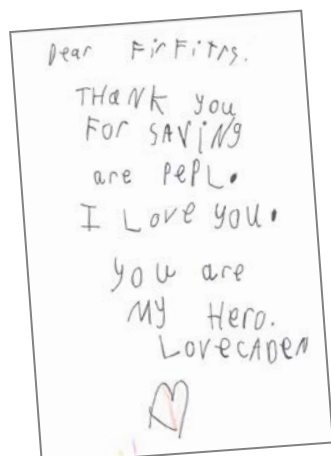 Dear FirFitrs.
THaNK you
For SAViNg
are PePL.
I Love you.
you are
My Hero.
LoveCADeN